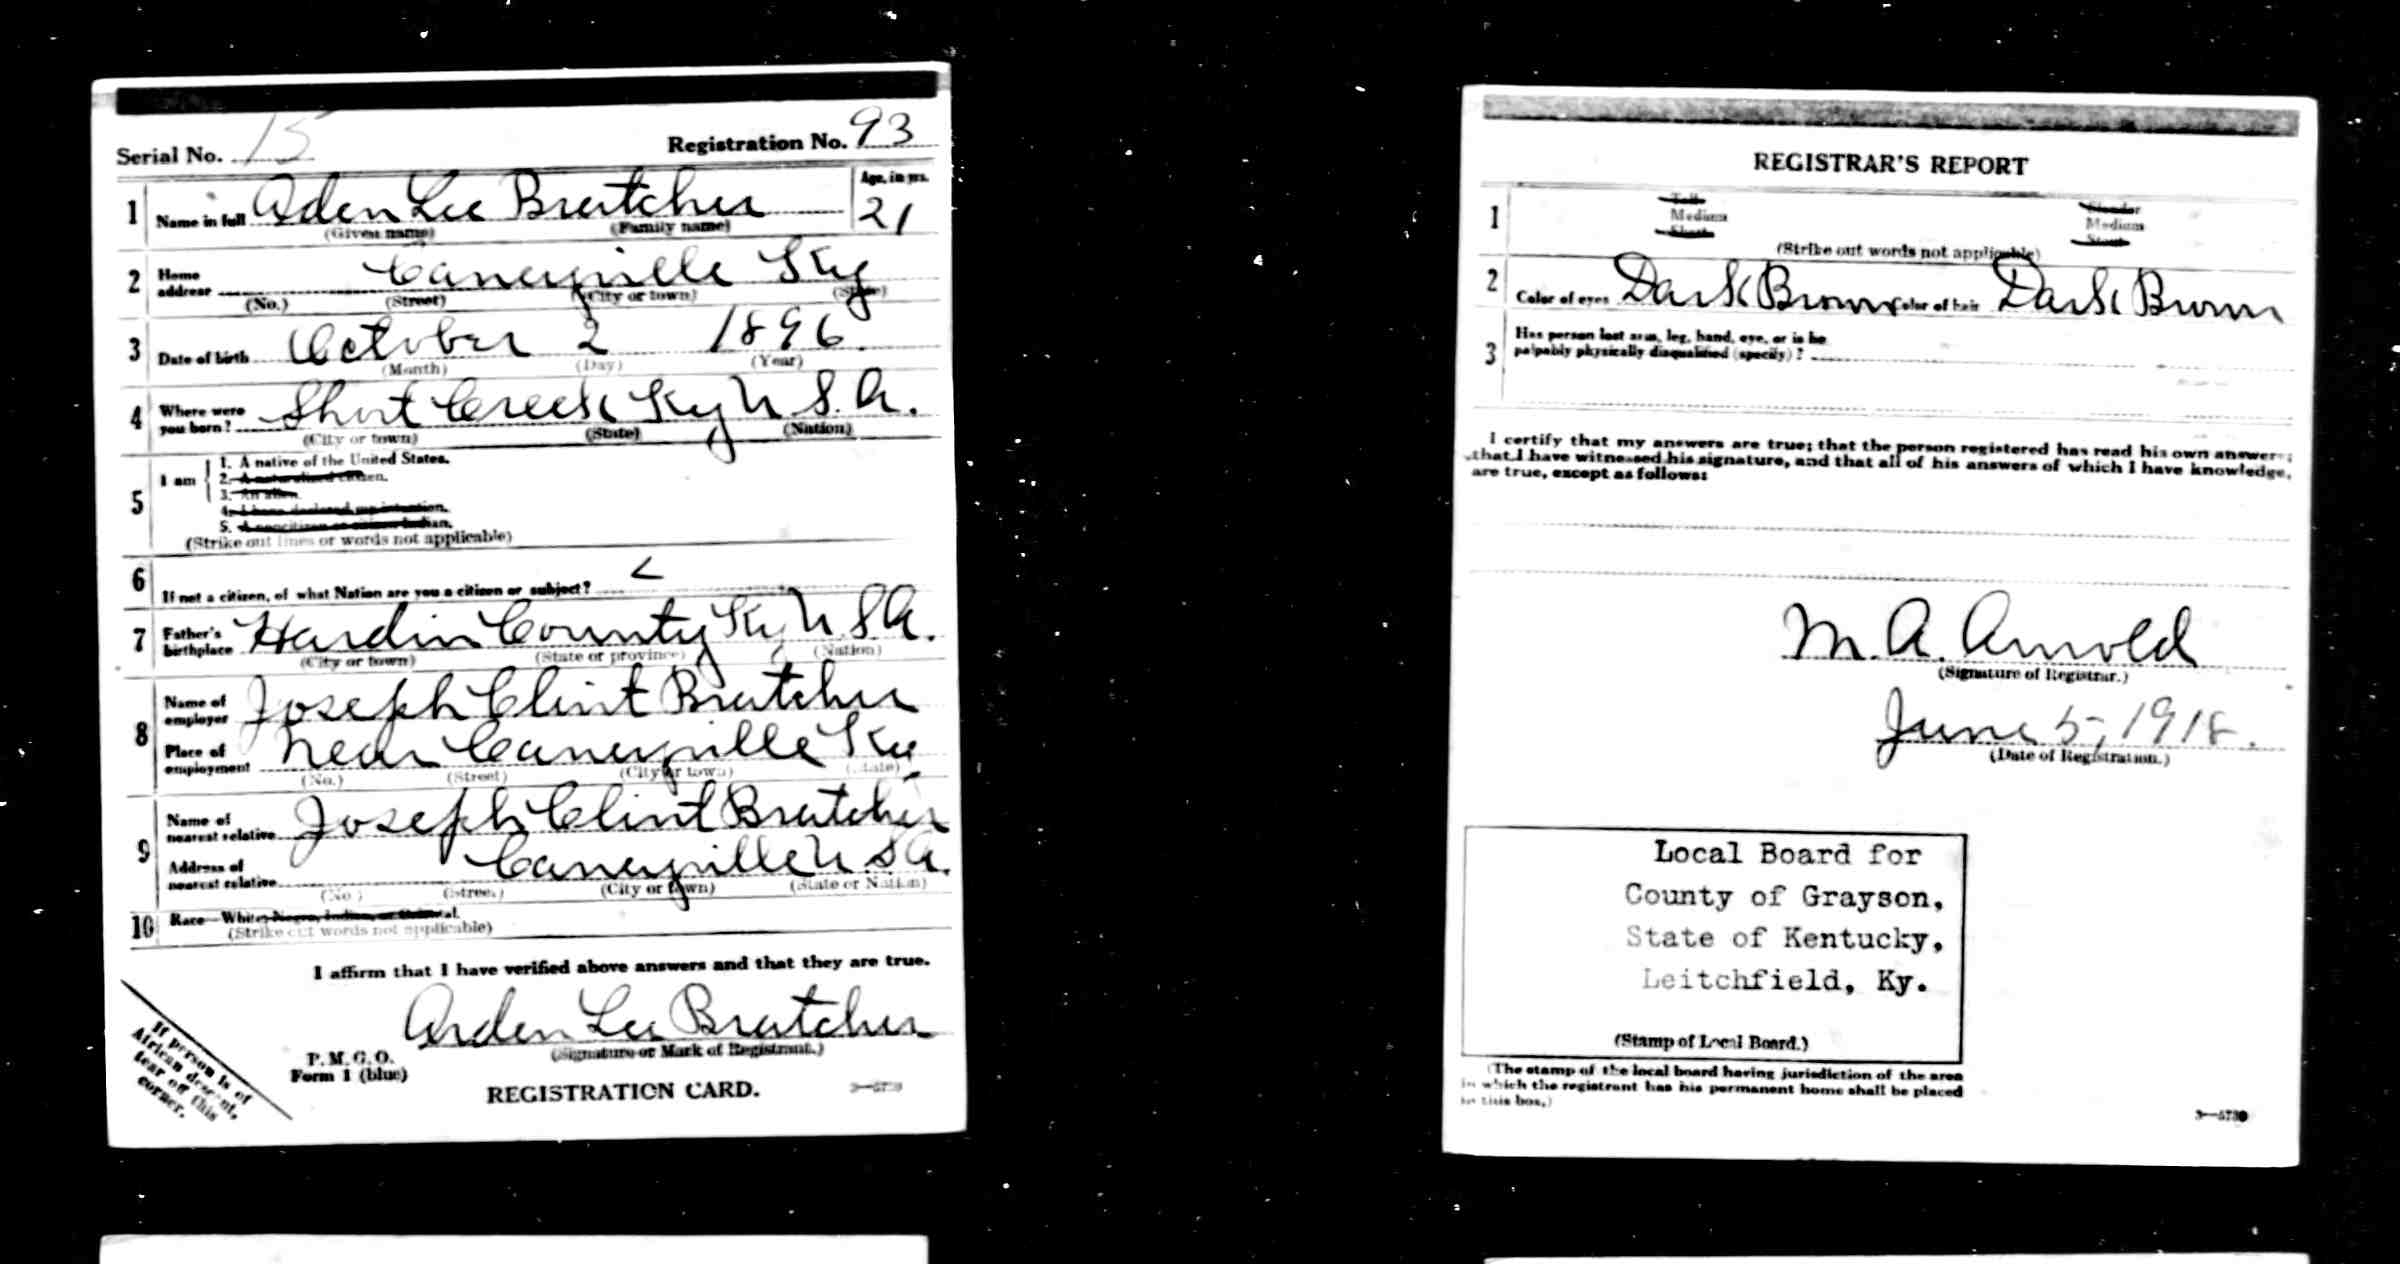 Serial No. 15 Registration No. 93
1 Name in full Aden Lee Bratcher Age, in yrs. 21
(Given name) (Family name)
2 Home address Caneyville Ky
(No.) (Street) (City or town) (State)
3 Date of birth October 2 1896
(Month) (Day) (Year)
4 Where were you born? Short Creek Ky U.S.A.
(City or town) (State) (Nation)
5 I am 1. A native of the United States.
2. A naturalized citizen.
3. An alien.
4. I have declared my intention.
5. A noncitizen or citizen Indian.
(Strike out lines or words not applicable)
6 If not a citizen, of what Nation are you a citizen or subject?
7 Father's birthplace Hardin County Ky U.S.A.
(City or town) (State or province) (Nation)
8 Name of employer Joseph Clint Bratcher
Place of employment Near Caneyville Ky
(No.) (Street) (City or town) (State)
9 Name of nearest relative Joseph Clint Bratcher
Address of nearest relative Caneyville U.S.A.
(No.) (Street) (City or town) (State or Nation)
10 Race—White, Negro, Indian, or Oriental.
(Strike out words not applicable)
I affirm that I have verified above answers and that they are true.
Arden Lee Bratcher
(Signature or Mark of Registrant.)
P. M. G. O.
Form 1 (blue)
REGISTRATION CARD.
If person is of
African descent,
tear off this
corner.
REGISTRAR'S REPORT
1 Tall Slender
Medium Medium
Short Stout
(Strike out words not applicable)
2 Color of eyes Dark Brown Color of hair Dark Brown
3 Has person lost arm, leg, hand, eye, or is he
palpably physically disqualified (specify)?
I certify that my answers are true; that the person registered has read his own answers;
that I have witnessed his signature, and that all of his answers of which I have knowledge,
are true, except as follows:
M. A. Arnold
(Signature of Registrar.)
June 5, 1918.
(Date of Registration.)
Local Board for
County of Grayson,
State of Kentucky,
Leitchfield, Ky.
(Stamp of Local Board.)
(The stamp of the local board having jurisdiction of the area
in which the registrant has his permanent home shall be placed
in this box.)
3—5730